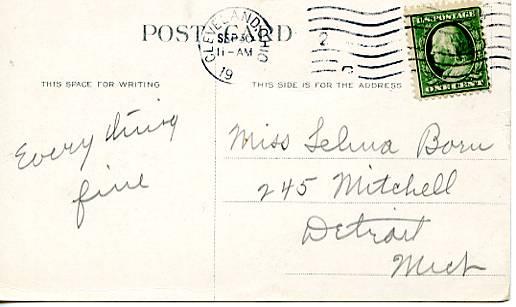 POST CARD
CLEVELAND, OHIO
SEP 30
11-AM
19
2
U.S. POSTAGE
ONE CENT
THIS SPACE FOR WRITING
THIS SIDE IS FOR THE ADDRESS
Everything
fine
Miss Selma Born
245 Mitchell
Detroit
Mich